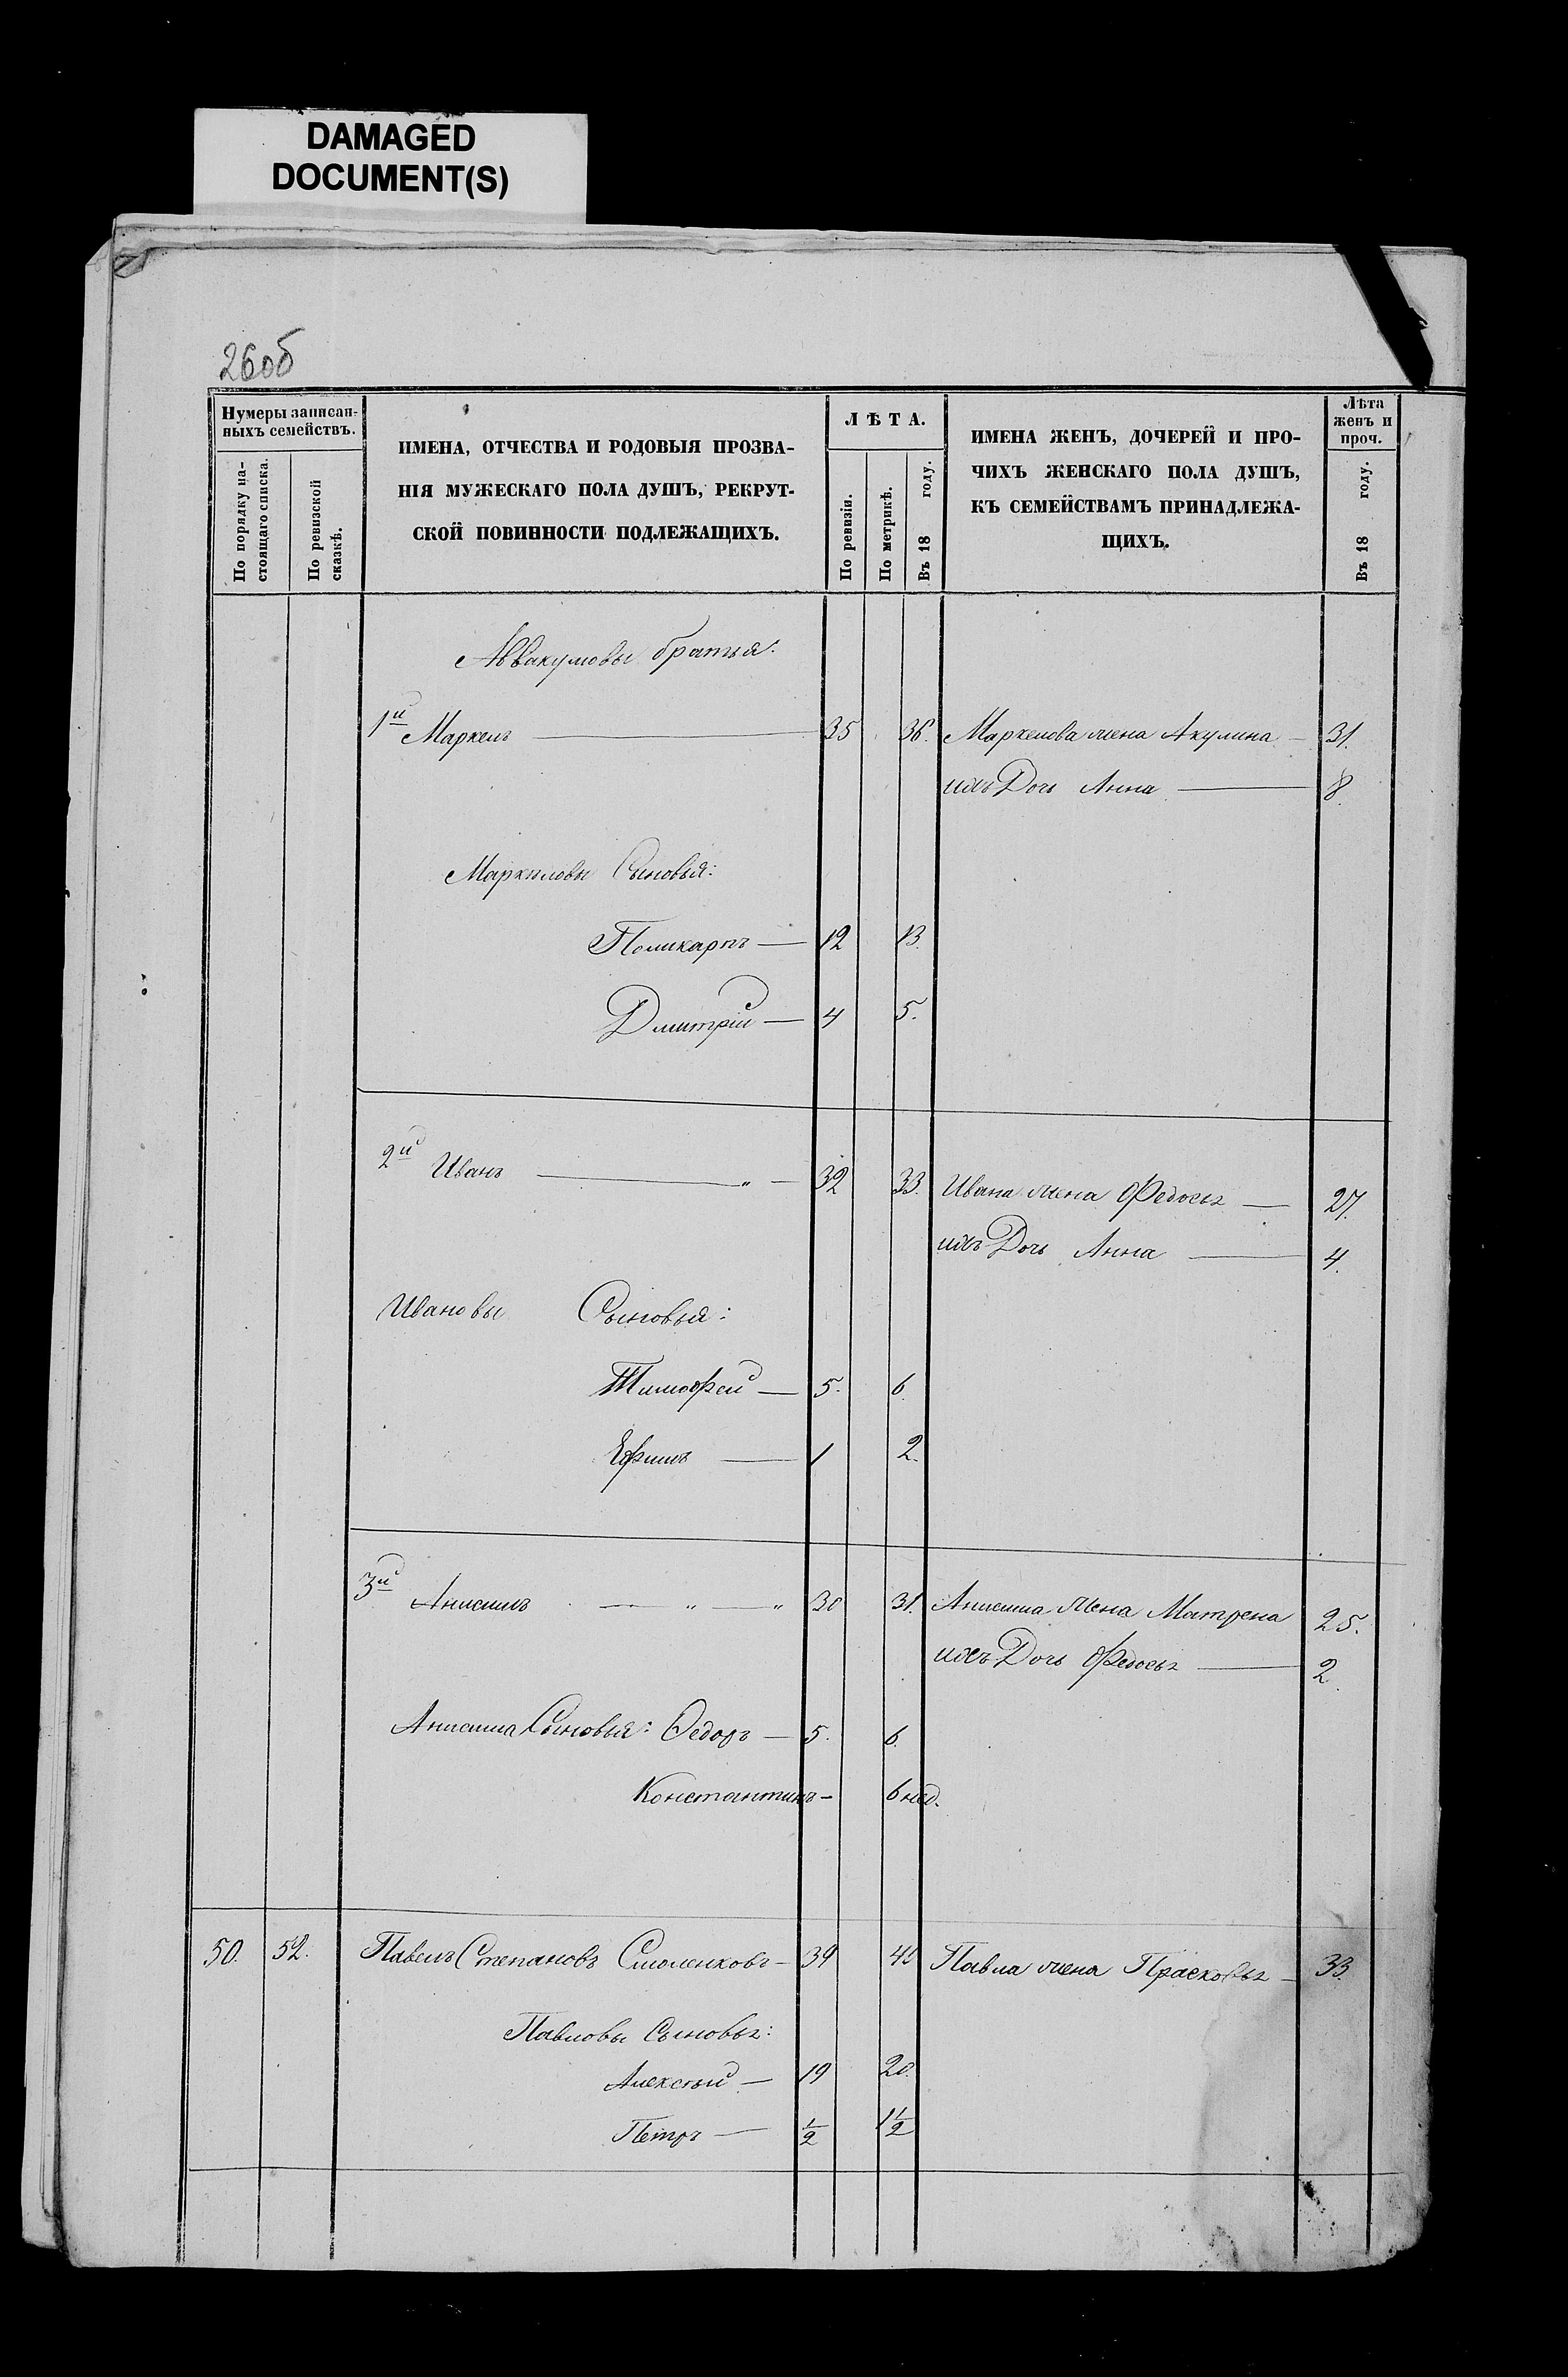 DAMAGED
DOCUMENT(S)
26об
Нумеры записан-
ныхъ семействъ.
По порядку на-
стоящаго списка.
По ревизской
сказкѣ.
ИМЕНА, ОТЧЕСТВА И РОДОВЫЯ ПРОЗВА-
НІЯ МУЖЕСКАГО ПОЛА ДУШЪ, РЕКРУТ-
СКОЙ ПОВИННОСТИ ПОДЛЕЖАЩИХЪ.
ЛѢТА.
По ревизіи.
По метрикѣ.
Въ 18 году.
ИМЕНА ЖЕНЪ, ДОЧЕРЕЙ И ПРО-
ЧИХЪ ЖЕНСКАГО ПОЛА ДУШЪ,
КЪ СЕМЕЙСТВАМЪ ПРИНАДЛЕЖА-
ЩИХЪ.
Лѣта
женъ и
проч.
Въ 18 году.
Аввакумовы братья:
1й Маркелъ — 35 36. Маркелова жена Акулина — 31.
ихъ Дочь Анна — 8.
Маркеловы Сыновья:
Поликарпъ — 12 13.
Дмитрій — 4 5.
2й Иванъ — " — 32 33. Ивана жена Федосья — 27.
ихъ Дочь Анна — 4.
Ивановы Сыновья:
Тимофей — 5. 6.
Ефимъ — 1 2.
3й Анисимъ — " — " 30 31. Анисима жена Матрена 25.
ихъ Дочь Федосья — 2.
Анисима Сыновья: Ѳедоръ — 5. 6.
Константинъ — 6 нед.
50. 52. Павелъ Степановъ Смоленковъ — 39 40 Павла жена Прасковья — 33.
Павловы Сыновья:
Алексѣй — 19 20.
Петръ — 1/2 1 1/2